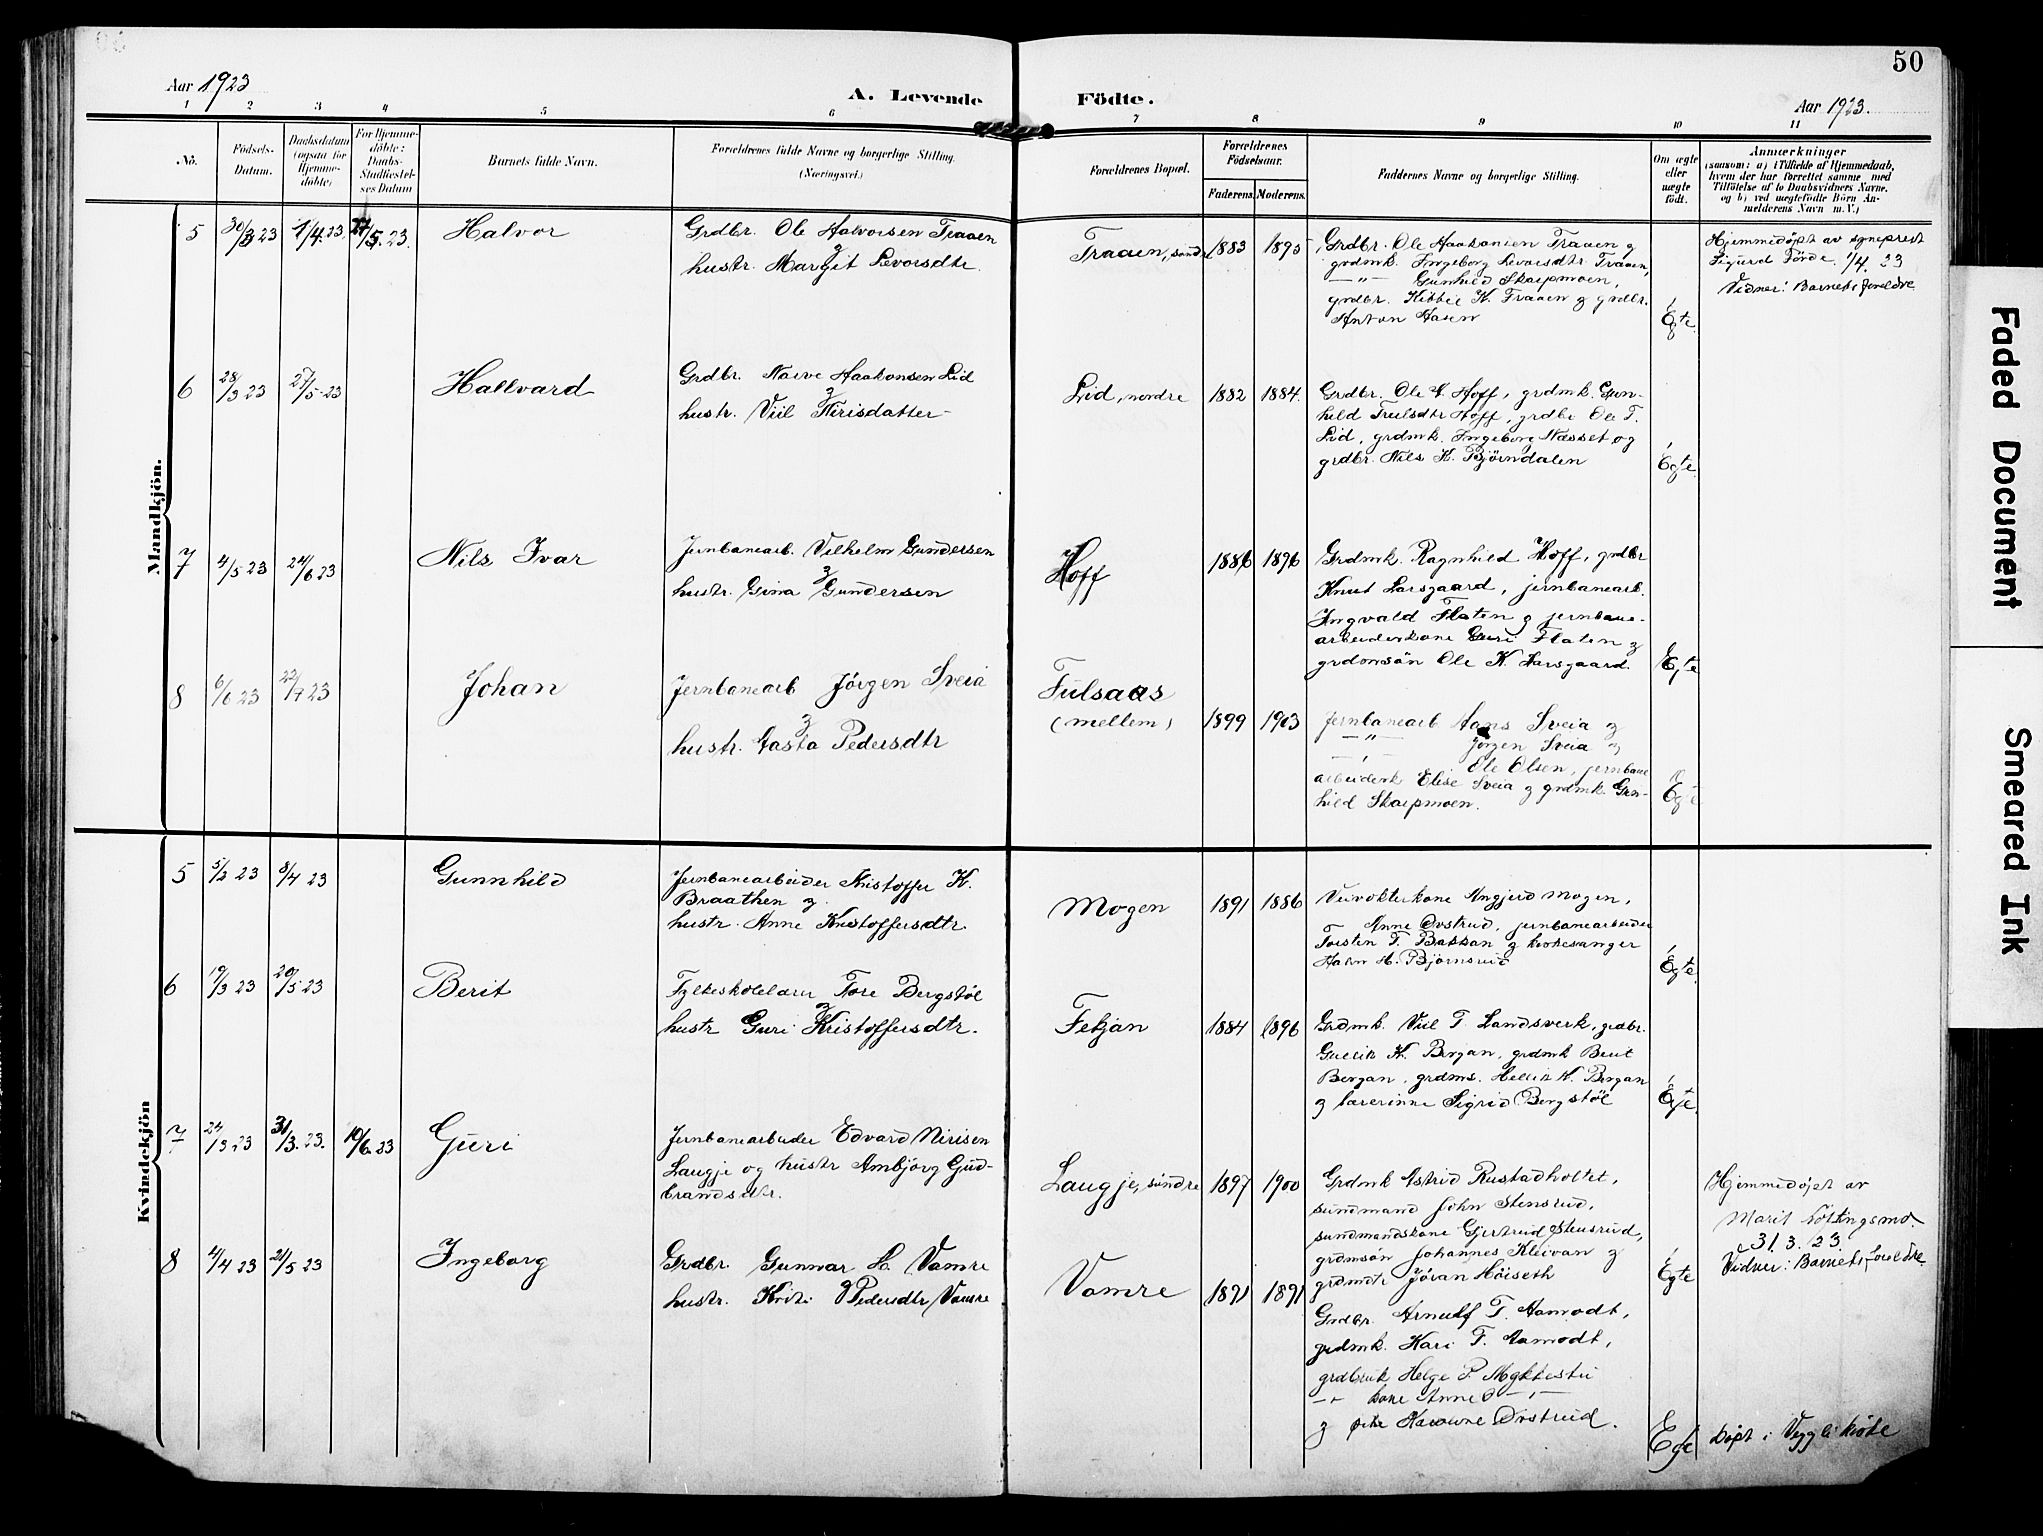 50
Aar 1923
A. Levende Födte.
Aar 1923.
1 2 3 4 5 6 7 8 9 10 11
No.
Födsels-
Datum.
Daabsdatum
(ogsaa for
Hjemme-
döbte)
For Hjemme-
döbte:
Daabs-
Stadfæstel-
ses Datum
Barnets fulde Navn.
Forældrenes fulde Navne og borgerlige Stilling.
(Næringsvei.)
Forældrenes Bopæl.
Forældrenes
Födselsaar.
Faderens. Moderens.
Faddernes Navne og borgerlige Stilling.
Om ægte
eller
uægte
født.
Anmærkninger
(saasom: a) i Tilfælde af Hjemmedaab,
hvem der har forrettet samme med
Tilföielse af to Daabsvidners Navne.
og b) ved uægtefödte Börn An-
melderens Navn m. V.)
Mandkjön.
5 30/3 23 1/4. 23. 27/5. 23. Halvor
Grdbr. Ole Halvorsen Traaen
&
hustr. Margit Levorsdtr.
Traaen, søndre 1883 1895
Grdbr. Ole Haakonsen Traaen &
grdmk. Ingeborg Levorsdtr. Traaen,
— " — Gunhild Skarpmoen,
grdbr. Kittil K. Traaen & grdbr.
Anton Aasen
Egte.
Hjemmedøpt av sogneprest
Sigurd Førde. 1/4. 23
Vidner: Barnets foreldre
6 28/3 23 27/5 23 Hallvard
Grdbr. Narve Haakonsen Lid
&
hustr. Viil Nirisdatter
Lid, nordre 1882 1884.
Grdbr. Ole H. Hoff, grdmk. Gun-
hild Trulsdtr Hoff, grdbr Ole T.
Lid, grdmk. Ingeborg Næsset og
grdbr. Nils K. Bjørndalen
Egte.
7 4/5 23 24/6 23 Nils Ivar
Jernbanearb. Vilhelm Gundersen
&
hustr. Gina Gundersen
Hoff 1886 1896
Grdmk. Ragnhild Hoff, grdbr
Knut Larsgaard, jernbanearb.
Ingvald Flaten & jernbane-
arbeiderkone Guri Flaten &
grdmsøn Ole K. Larsgaard.
Egte
8 6/6 23 22/7 23 Johan
Jernbanearb Jörgen Sveia
&
hustr. Aasta Pedersdtr
Fulsaas
(mellem) 1899 1903
Jernbanearb Hans Sveia &
— " — Jörgen Sveia &
— " — Ole Olsen, jernbane
arbeiderk Elise Sveia & grdmk. Gun-
hild Skarpmoen.
Egte
Kvindekjön
5 5/2 23 8/4 23 Gunnhild
Jernbanearbeider Kristoffer K.
Braathen &
hustr. Anne Kristoffersdtr.
Mogen 1891 1886
Veivokterkone Angjerd Mogen,
Anne Ørstrud, jernbanearbeider
Torsten T. Bakkan & kirkesanger
Halvor H. Bjørnsrud
Egte.
6 19/3 23 20/5 23 Berit
Fylkeskolelærer Tore Bergstøl
&
hustr Guri Kristoffersdtr.
Fekjan 1884 1896
Grdmk. Viil T. Landsverk, grdbr.
Gullik H. Bergan, grdmk Berit
Bergan, grdms. Hellik H. Bergan
& lærerinne Sigrid Bergstøl
Egte.
7 24/3 23 31/3. 23. 10/6. 23 Guri
Jernbanearbeider Edvard Nirisen
Laugje og hustr Ambjørg Gud-
brandsdtr.
Laugje, søndre 1897 1900
Grdmk Astrid Rustadholtet,
sundmand John Stensrud,
sundmandskone Gjertrud Stensrud,
grdmsøn Johannes Kleivan &
grdmdtr Jöran Höiseth
Egte
Hjemmedøpt av
Marit
31. 3. 23
Vidner: Barnets foreldre
8 4/4 23 21/5 23 Ingeborg
Grdbr. Gunnar H. Vamre
&
hustr. Kristi Pedersdtr Vamre
Vamre 1891 1891
Grdbr. Arnulf T. Aamodt,
grdmk. Kari T. Aamodt,
grdbruk Helge P. Myklestu
— " — kone Anne — " —
& pike Karoline Ørstrud.
Egte døpt i Veggli kirke
Faded Document
Smeared Ink